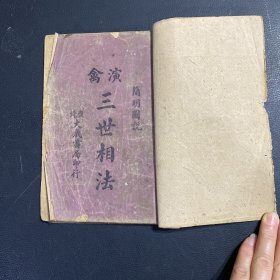 簡明圖説
演禽
三世相法
大成書局印行